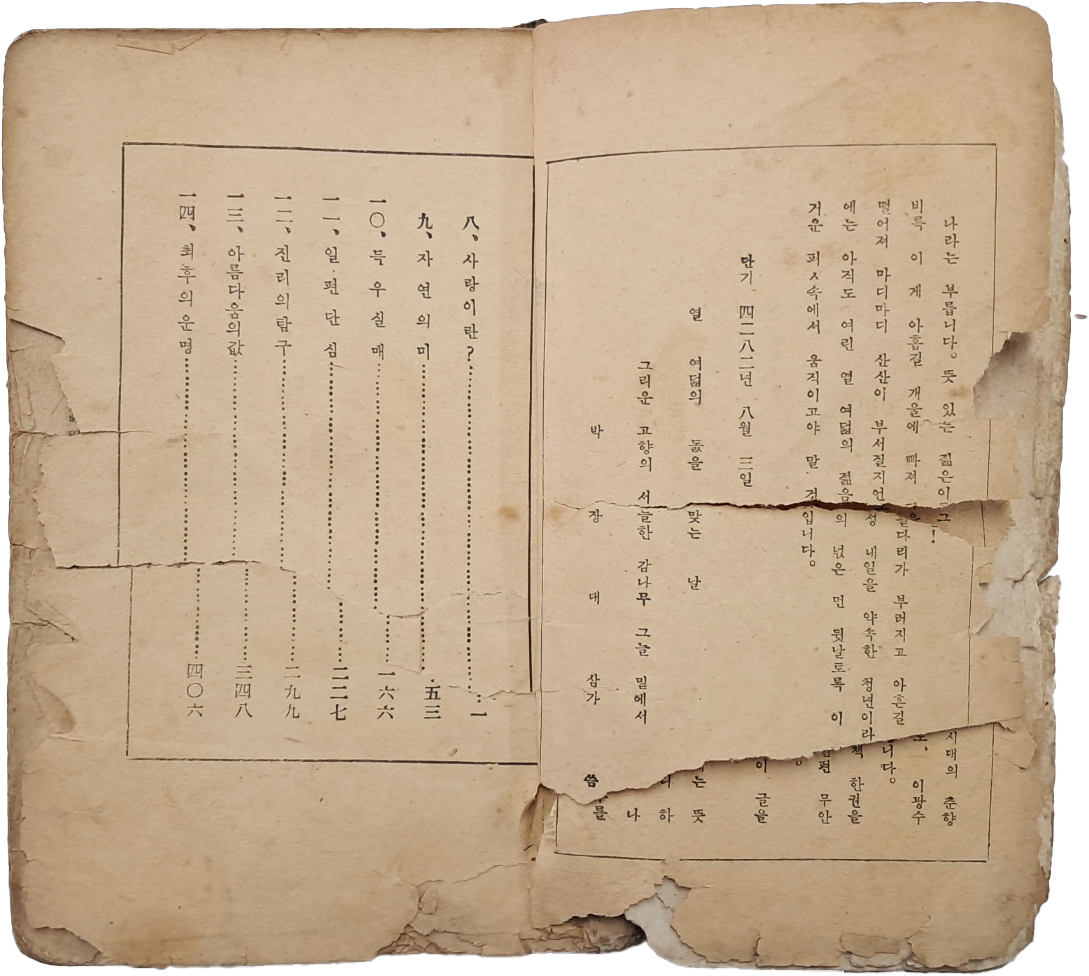 나라는 부릅니다。 뜻 있는 젊은이
비륵 이 게 아흡길 개울에 빠져 다리가 부러지고 아흔길
떨어져 마디마디 산산이 부서질지언 성 내일을 약속한 청년이라
에는 아직도 여린 열 여덟의 젊음의 넋은 먼 뒷날토록 이
거운 피ㅅ속에서 움직이고야 말 것입니다。
단기 四二八二년 八월 三일
열 여덟의 돐을 맞는 날
그리운 고향의 서늘한 감나무 그늘 밑에서
박 장 대 삼가 씀
시대의 춘향
이광수
니다。
책 한권을
편 무안
이 글을
는 뜻
하
나
를
八、사랑이란?……一
九、자연의미……五三
一〇、특우실매……一六六
一一、일편단심……二二七
一二、진리의탐구……二九九
一三、아름다움의값……三四八
一四、최후의운명……四〇六